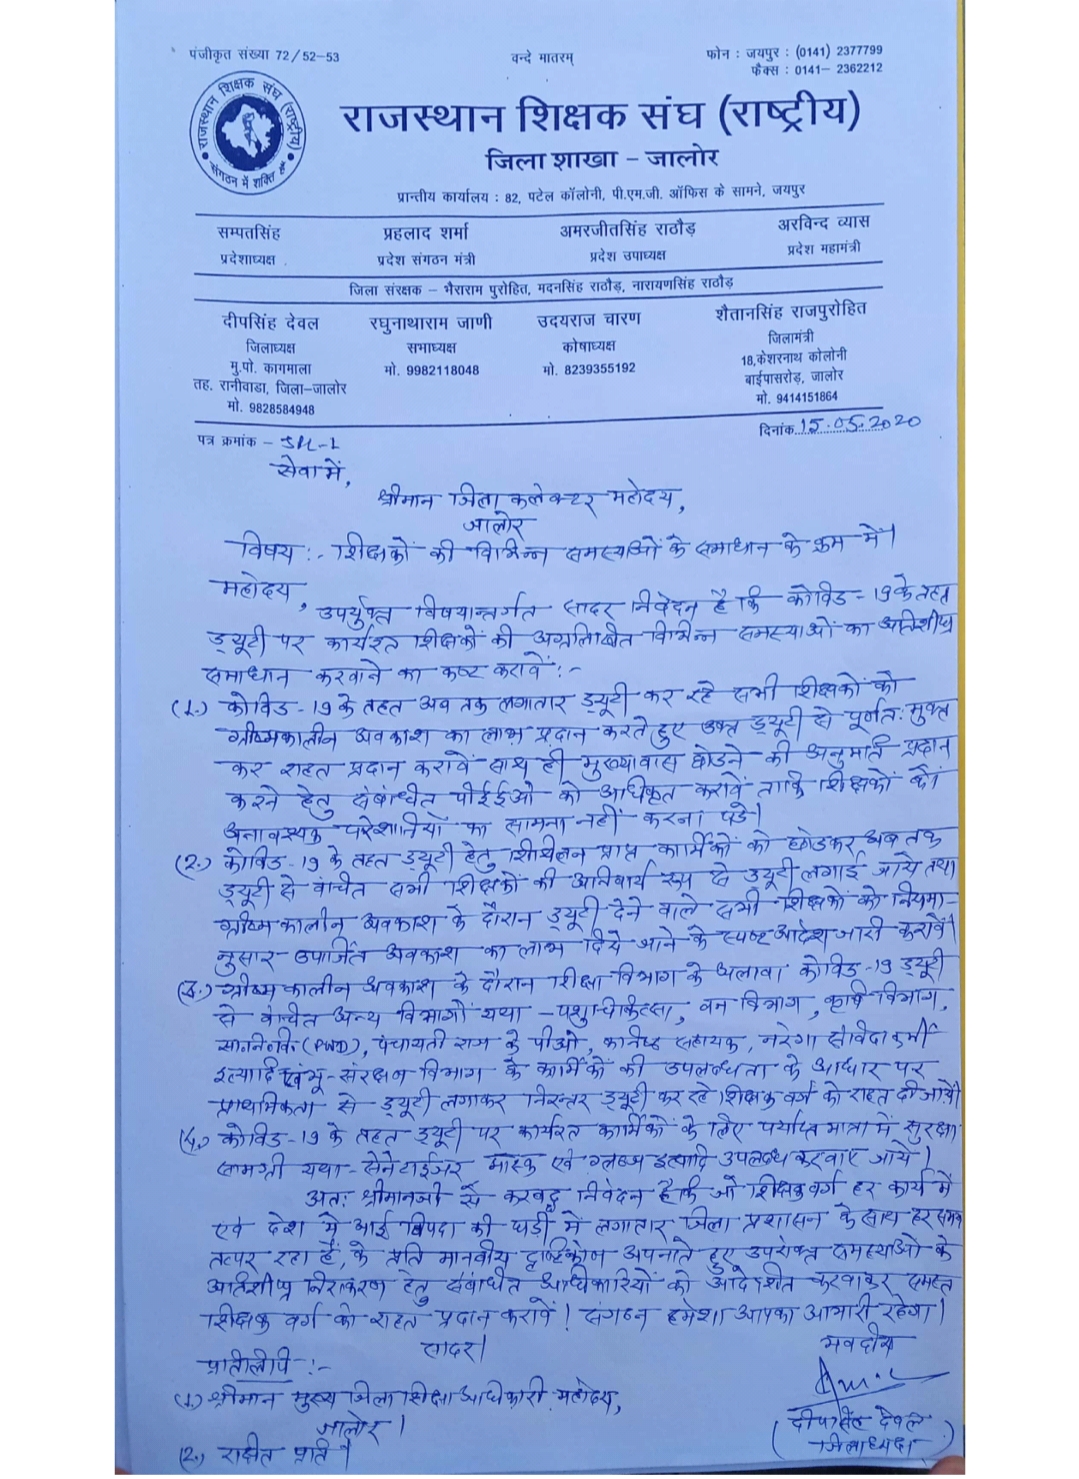 पंजीकृत संख्या 72/52-53
वन्दे मातरम्
फोन : जयपुर : (0141) 2377799
फैक्स : 0141- 2362212
राजस्थान शिक्षक संघ (राष्ट्रीय)
संगठन में शक्ति है
राजस्थान शिक्षक संघ (राष्ट्रीय)
जिला शाखा - जालोर
प्रान्तीय कार्यालय : 82, पटेल कॉलोनी, पी.एम.जी. ऑफिस के सामने, जयपुर
सम्पतसिंह प्रहलाद शर्मा अमरजीतसिंह राठौड़ अरविन्द व्यास
प्रदेशाध्यक्ष प्रदेश संगठन मंत्री प्रदेश उपाध्यक्ष प्रदेश महामंत्री
जिला संरक्षक - भैराराम पुरोहित, मदनसिंह राठौड़, नारायणसिंह राठौड़
दीपसिंह देवल रघुनाथाराम जाणी उदयराज चारण शैतानसिंह राजपुरोहित
जिलाध्यक्ष सभाध्यक्ष कोषाध्यक्ष जिलामंत्री
मु.पो. कागमाला मो. 9982118048 मो. 8239355192 18,केशरनाथ कोलोनी
तह. रानीवाडा, जिला-जालोर बाईपासरोड़, जालोर
मो. 9828584948 मो. 9414151864
पत्र क्रमांक - दिनांक 15.05.2020
सेवा में,
श्रीमान जिला कलेक्टर महोदय,
जालोर
विषय :- शिक्षकों की विभिन्न समस्याओं के समाधान के क्रम में।
महोदय,
उपर्युक्त विषयान्तर्गत सादर निवेदन है कि कोविड-19 के तहत
ड्यूटी पर कार्यरत शिक्षकों की अग्रलिखित विभिन्न समस्याओं का अतिशीघ्र
समाधान करवाने का कष्ट करावें :-
(1.) कोविड-19 के तहत अब तक लगातार ड्यूटी कर रहे सभी शिक्षकों को
ग्रीष्मकालीन अवकाश का लाभ प्रदान करते हुए उक्त ड्यूटी से पूर्णतः मुक्त
कर राहत प्रदान करावें साथ ही मुख्यावास छोडने की अनुमति प्रदान
करने हेतु संबंधित पीईईओ को अधिकृत करावें ताकि शिक्षकों को
अनावश्यक परेशानियों का सामना नहीं करना पडे।
(2.) कोविड-19 के तहत ड्यूटी हेतु शिथिलन प्राप्त कार्मिकों को छोडकर अब तक
ड्यूटी से वंचित सभी शिक्षकों की अनिवार्य रूप से ड्यूटी लगाई जाये तथा
ग्रीष्मकालीन अवकाश के दौरान ड्यूटी देने वाले सभी शिक्षकों को नियमा-
नुसार उपार्जित अवकाश का लाभ दिये जाने के स्पष्ट आदेश जारी करावें।
(3.) ग्रीष्मकालीन अवकाश के दौरान शिक्षा विभाग के अलावा कोविड-19 ड्यूटी
से वंचित अन्य विभागों यथा - पशुचिकित्सा, वन विभाग, कृषि विभाग,
सा.नि.वि. (PWD), पंचायती राज के पीओ, कनिष्ठ सहायक, नरेगा संविदा कर्मी
इत्यादि एवं भू-संरक्षण विभाग के कार्मिकों की उपलब्धता के आधार पर
प्राथमिकता से ड्यूटी लगाकर निरन्तर ड्यूटी कर रहे शिक्षक वर्ग को राहत दी जाये।
(4.) कोविड-19 के तहत ड्यूटी पर कार्यरत कार्मिकों के लिए पर्याप्त मात्रा में सुरक्षा
सामग्री यथा- सेनेटाईजर मास्क एवं ग्लब्ज इत्यादि उपलब्ध करवाए जाये।
अतः श्रीमानजी से करबद्ध निवेदन है कि जो शिक्षक वर्ग हर कार्य में
एवं देश में आई विपदा की घडी में लगातार जिला प्रशासन के साथ हर समय
तत्पर रहा है, के प्रति मानवीय दृष्टिकोण अपनाते हुए उपरोक्त समस्याओं के
अतिशीघ्र निराकरण हेतु संबंधित अधिकारियों को आदेशित करवाकर समस्त
शिक्षक वर्ग को राहत प्रदान करावें। संगठन हमेशा आपका आभारी रहेगा।
सादर।
भवदीय
प्रतिलिपि :-
(1.) श्रीमान मुख्य जिला शिक्षा अधिकारी महोदय,
जालोर।
(2.) रक्षित प्रति।
(दीपसिंह देवल
जिलाध्यक्ष)